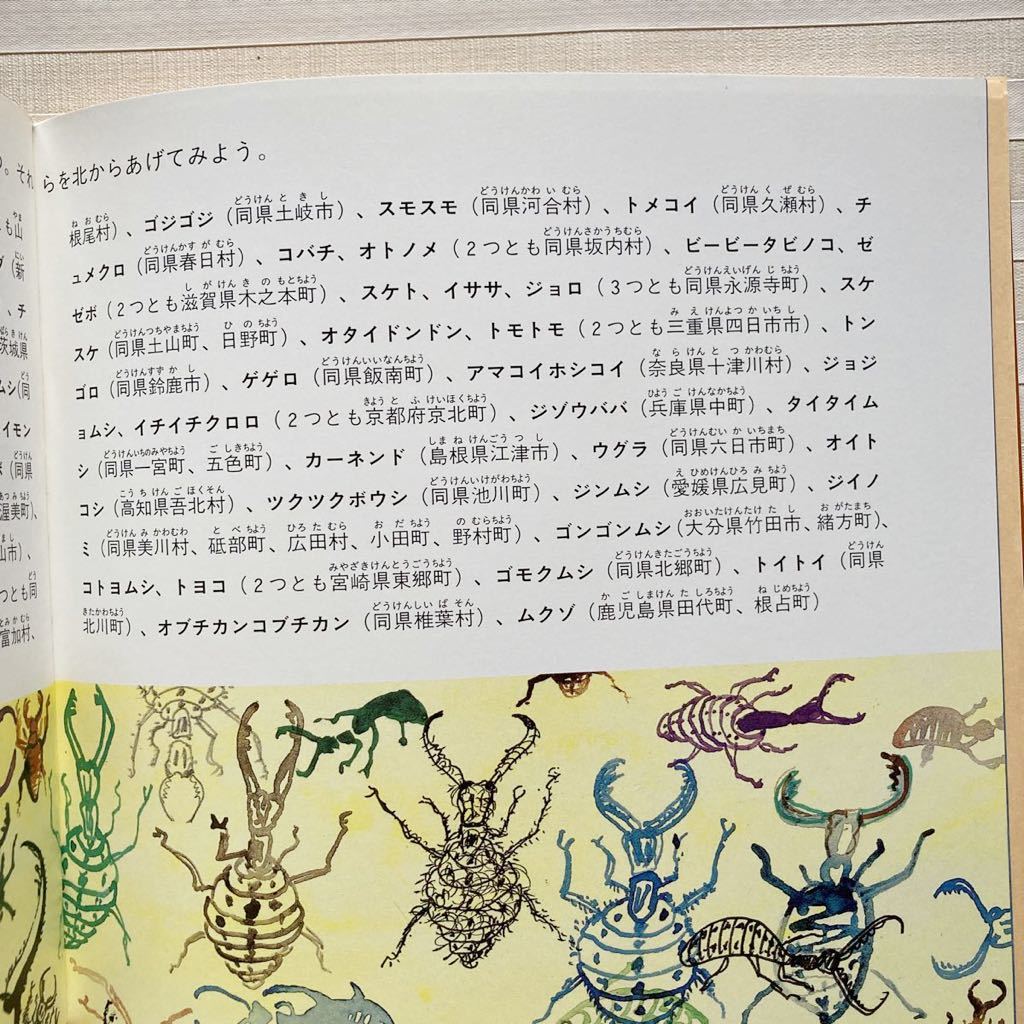 。それらを北からあげてみよう。
根尾村）、ゴジゴジ（同県土岐市）、スモスモ（同県河合村）、トメコイ（同県久瀬村）、チ
ュメクロ（同県春日村）、コバチ、オトノメ（２つとも同県坂内村）、ビービータビノコ、ゼ
ゼボ（２つとも滋賀県木之本町）、スケト、イササ、ジョロ（３つとも同県永源寺町）、スケ
スケ（同県土山町、日野町）、オタイドンドン、トモトモ（２つとも三重県四日市市）、トン
ゴロ（同県鈴鹿市）、ゲゲロ（同県飯南町）、アマコイホシコイ（奈良県十津川村）、ジョジ
ョムシ、イチイチクロロ（２つとも京都府京北町）、ジゾウババ（兵庫県中町）、タイタイム
シ（同県一宮町、五色町）、カーネンド（島根県江津市）、ウグラ（同県六日市町）、オイト
コシ（高知県吾北村）、ツクツクボウシ（同県池川町）、ジンムシ（愛媛県広見町）、ジイノ
ミ（同県美川村、砥部町、広田村、小田町、野村町）、ゴンゴンムシ（大分県竹田市、緒方町）、
コトヨムシ、トヨコ（２つとも宮崎県東郷町）、ゴモクムシ（同県北郷町）、トイトイ（同県
北川町）、オブチカンコブチカン（同県椎葉村）、ムクゾ（鹿児島県田代町、根占町）